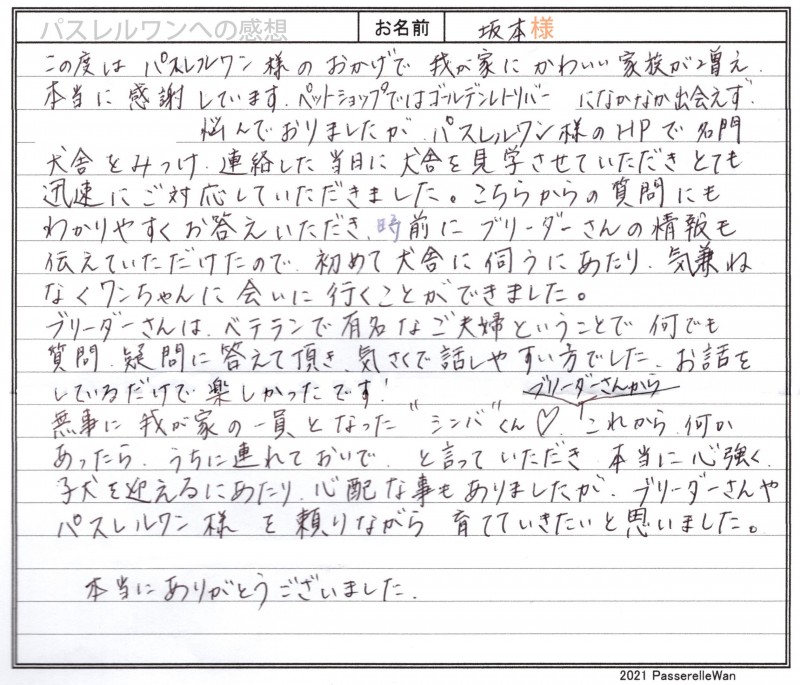 パスレルワンへの感想 お名前 坂本様
この度は パスレルワン様のおかげで 我が家に かわいい家族が増え.
本当に感謝しています. ペットショップではゴールデンレトリバー になかなか出会えず
悩んでおりましたが. パスレルワン様のHPで名門
犬舎をみつけ. 連絡した当日に犬舎を見学させていただきとても
迅速にご対応していただきました。こちらからの質問にも
わかりやすくお答えいただき、時前にブリーダーさんの情報も
伝えていただけたので. 初めて犬舎に伺うにあたり. 気兼ね
なくワンちゃんに会いに行くことができました。
ブリーダーさんは. ベテランで有名なご夫婦ということで何でも
質問. 疑問に答えて頂き、気さくで話しやすい方でした. お話を
しているだけで楽しかったです!
ブリーダーさんから
無事に我が家の一員となった"シンバ"くん♡. これから何か
あったら. うちに連れておいで. と言っていただき 本当に心強く.
子犬を迎えるにあたり. 心配な事もありましたが. ブリーダーさんや
パスレルワン様を頼りながら育てていきたいと思いました。
本当にありがとうございました.
2021 PasserelleWan